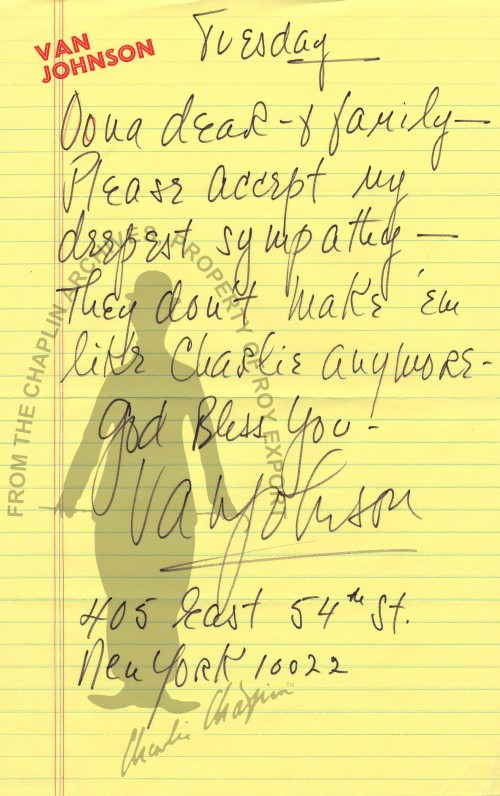 VAN
JOHNSON
Tuesday
Oona dear - & family -
Please accept my
deepest sympathy -
They don't make 'em
like Charlie anymore -
God Bless You -
Van Johnson
405 East 54th St.
New York 10022
FROM THE CHAPLIN ARCHIVES, PROPERTY OF ROY EXPORT
Charlie Chaplin™